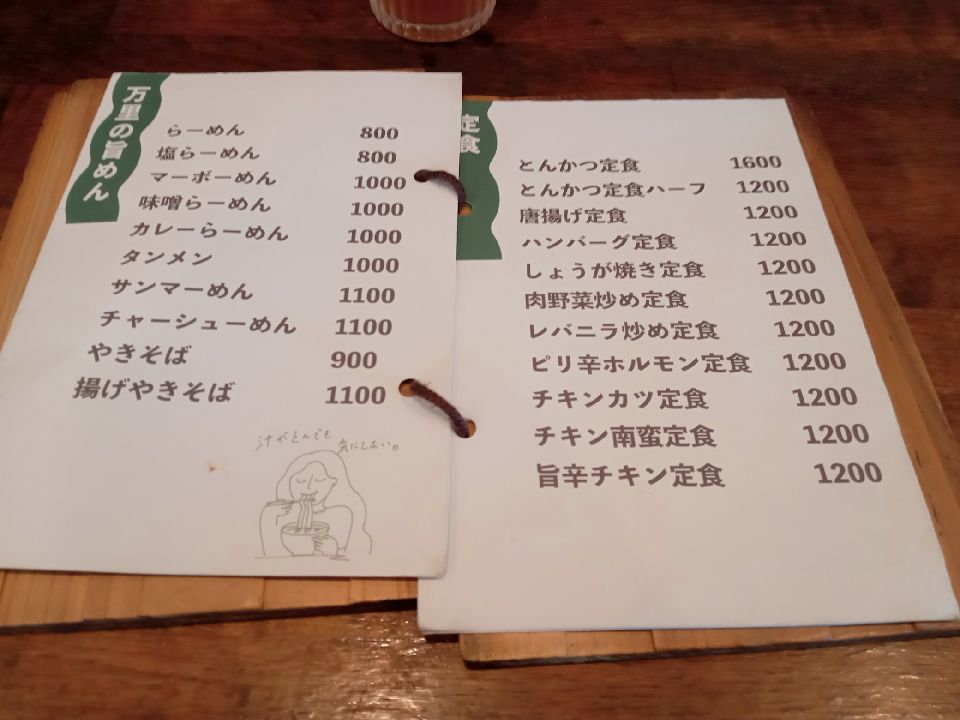 万里の旨めん
らーめん 800
塩らーめん 800
マーボーめん 1000
味噌らーめん 1000
カレーらーめん 1000
タンメン 1000
サンマーめん 1100
チャーシューめん 1100
やきそば 900
揚げやきそば 1100
汁がとんでも
気にしない。
定食
とんかつ定食 1600
とんかつ定食ハーフ 1200
唐揚げ定食 1200
ハンバーグ定食 1200
しょうが焼き定食 1200
肉野菜炒め定食 1200
レバニラ炒め定食 1200
ピリ辛ホルモン定食 1200
チキンカツ定食 1200
チキン南蛮定食 1200
旨辛チキン定食 1200